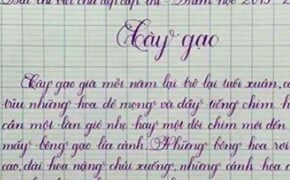 Bài thi viết chữ đẹp cấp thị - Năm học 2015 - 2
Cây gạo
Cây gạo già mỗi năm lại trở lại tuổi xuân, c
trĩu những hoa đỏ mọng và đầy tiếng chim h
cần một làn gió nhẹ hay một đôi chim mới đến
mấy bông gạo lìa cành. Những bông hoa rơi
cao, đài hoa nặng chúi xuống, những cánh hoa c